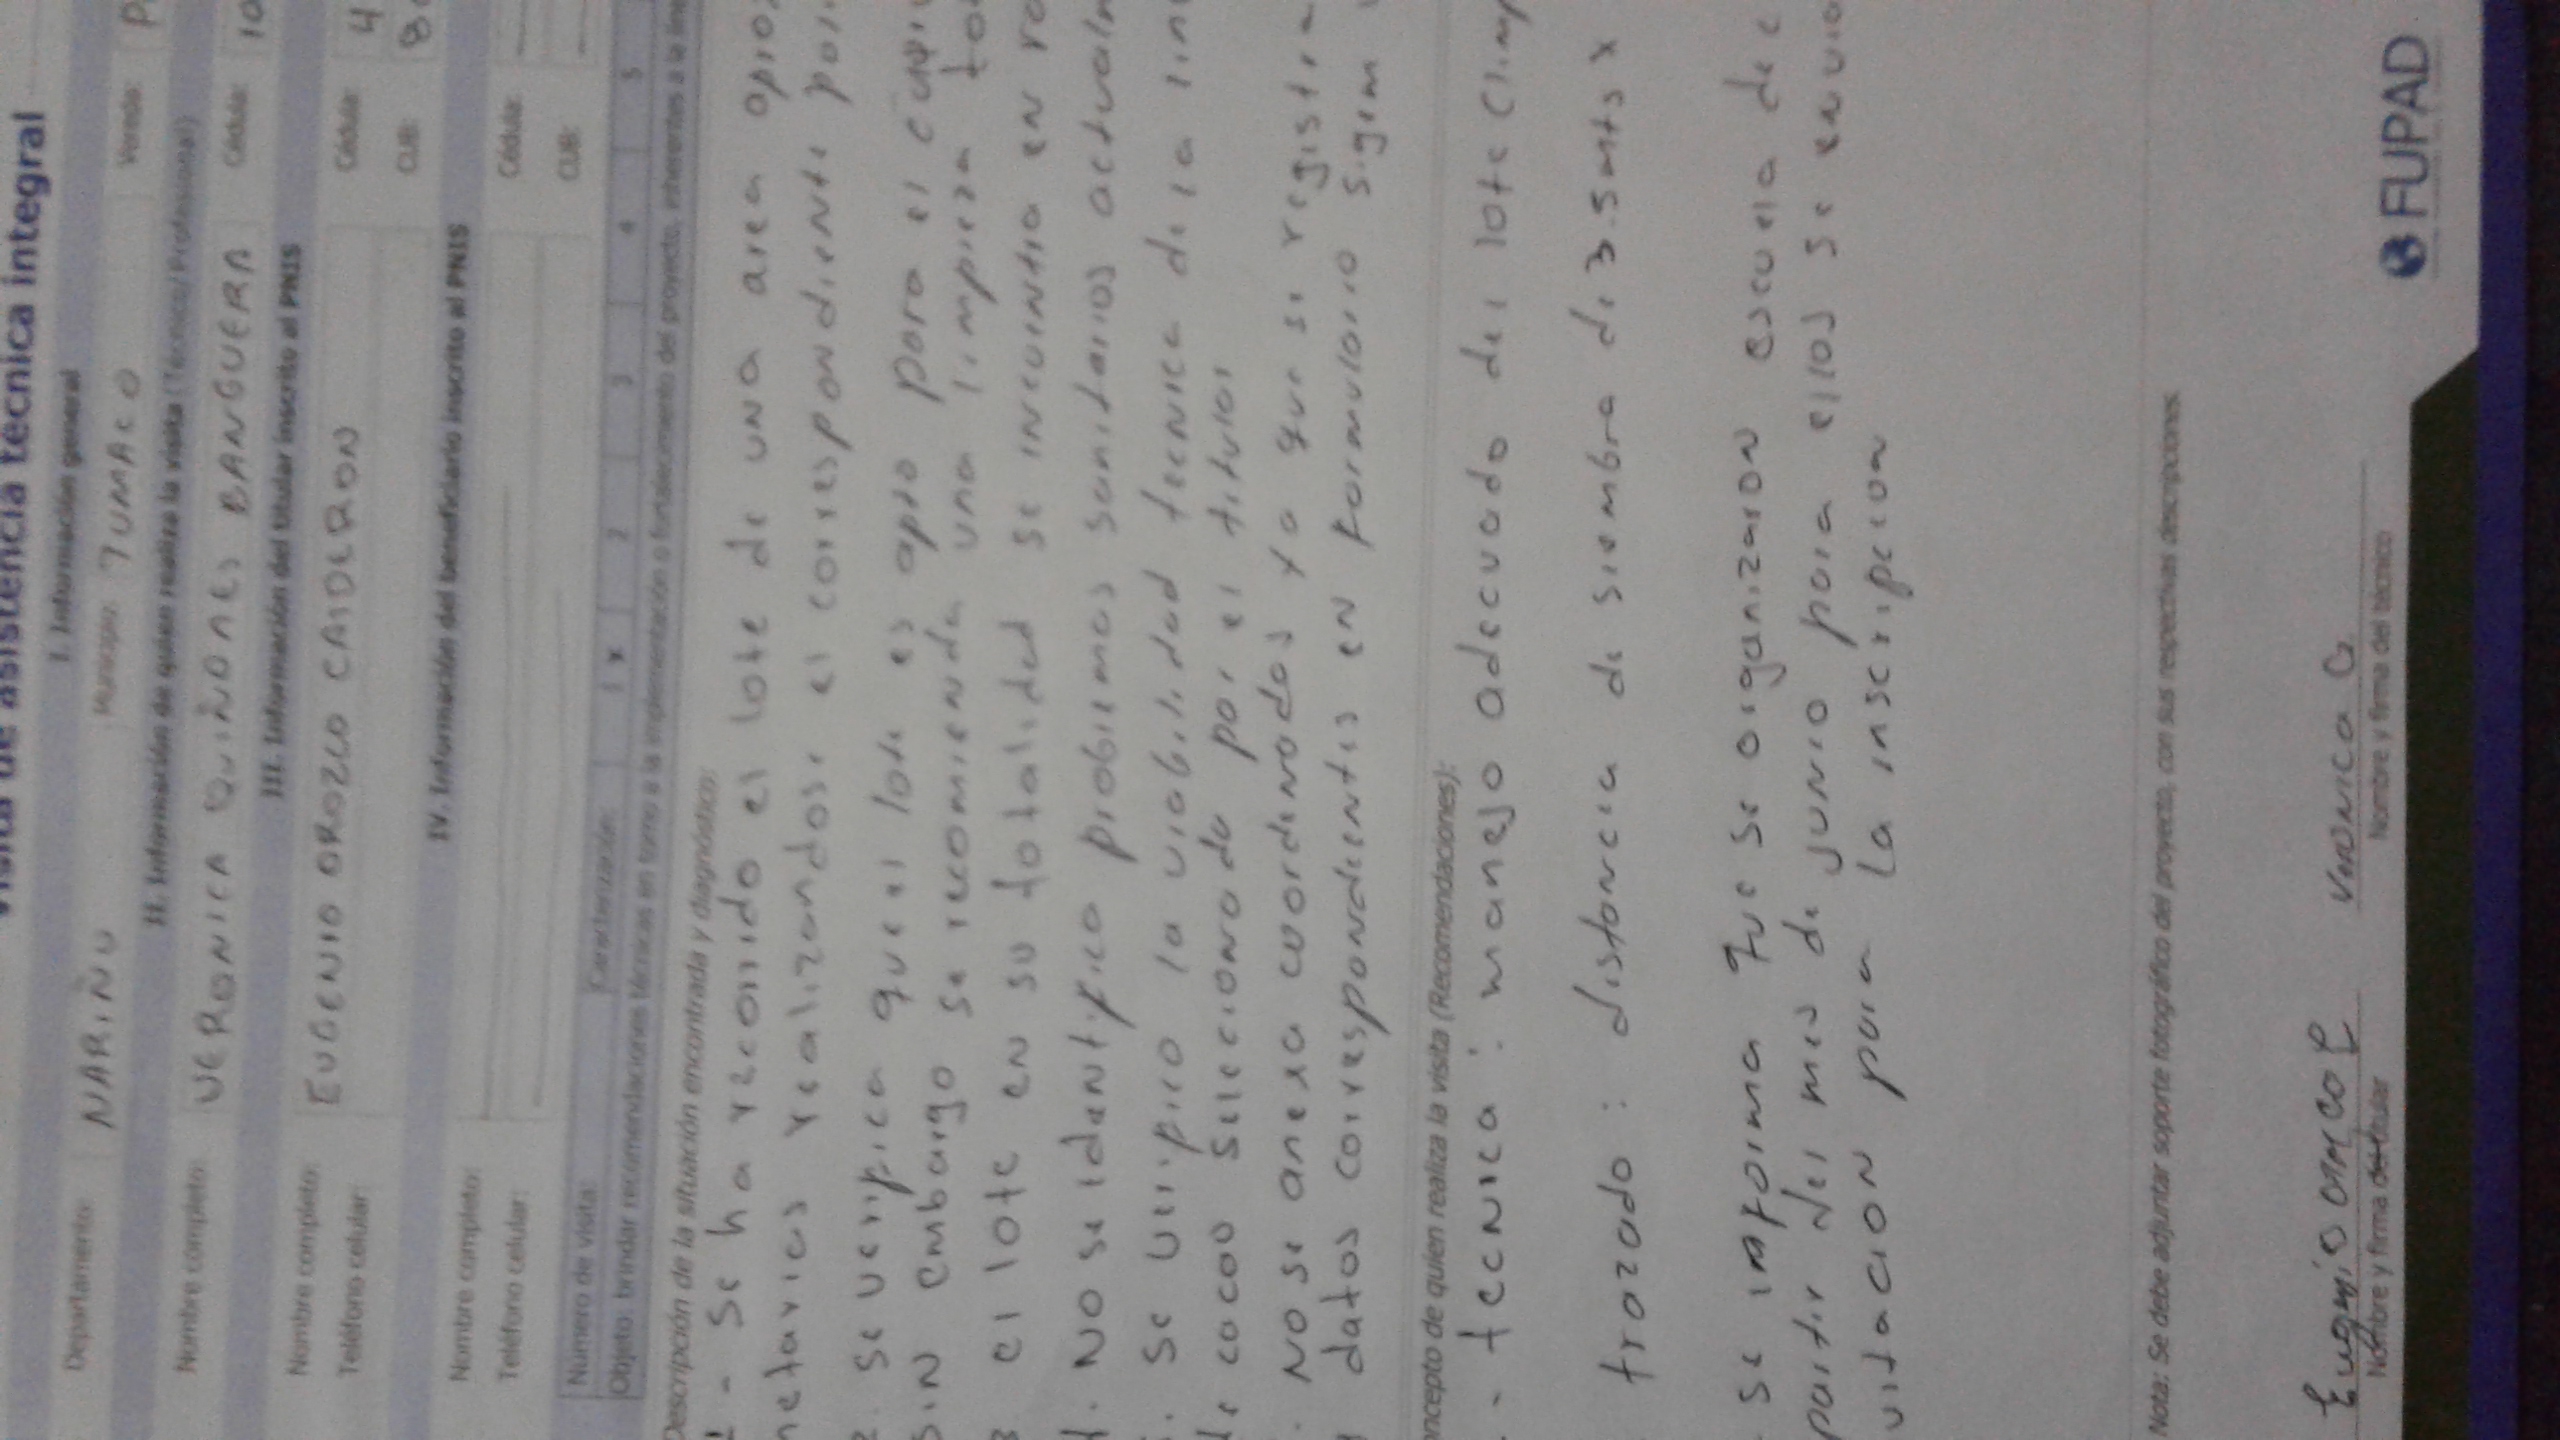 Visita de asistencia técnica integral
I. Información general
Departamento: NARIÑO Municipio: TUMACO Vereda: P
II. Información de quien realiza la visita (Técnico/Profesional)
Nombre completo: VERONICA QUIÑONES BANGUERA Cédula: 10
III. Información del titular inscrito al PNIS
Nombre completo: EUGENIO OROZCO CALDERON Cédula: 4
Teléfono celular: CUB: 8
IV. Información del beneficiario inscrito al PNIS
Nombre completo: Cédula:
Teléfono celular: CUB:
Número de visita: Caracterización: 1 x 2 3 4 5
Objeto: brindar recomendaciones técnicas en torno a la implementación o fortalecimiento del proyecto, inherentes a la líne
Descripción de la situación encontrada y diagnóstico:
1 - Se ha recorrido el lote de una area aprox
netarios realizandose el correspondiente
2. Se verifica que el lote es apto para el
sin embargo se recomienda una limpieza
3 el lote en su totalidad se incuentra en
4. No se identifico problemas sanitarios actualm
. Se verifico la viabilidad tecnica de la line
de cacao selecionada por el titular
. No se anexa cuordenadas ya que se registra
datos correspondientes en formulario
oncepto de quien realiza la visita (Recomendaciones):
- tecnica: manejo adecuado del lote (limp
trazado: distancia de siembra de 3.5mts x
se informa que se organizaron escuela de c
partir del mes de junio para ellos se envio
vitacion para la inscripcion
Nota: Se debe adjuntar soporte fotográfico del proyecto, con sus respectivas descripciones.
Eugenio Orozco Veronica Q.
Nombre y firma del titular Nombre y firma del técnico
FUPAD